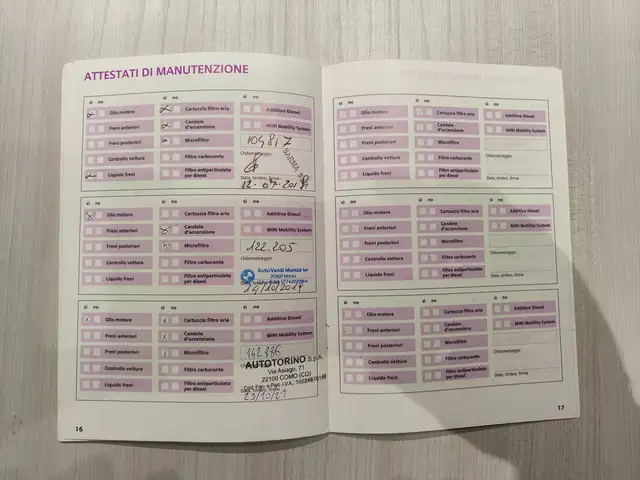 ATTESTATI DI MANUTENZIONE
sì no sì no sì no
Olio motore Cartuccia filtro aria Additivo Diesel
Freni anteriori Candele d'accensione MINI Mobility System
Freni posteriori Microfiltro 104817
Controllo vettura Filtro carburante Chilometraggio
Liquido freni Filtro antiparticolato per diesel Data, timbro, firma
sì no sì no sì no
Olio motore Cartuccia filtro aria Additivo Diesel
Freni anteriori Candele d'accensione MINI Mobility System
Freni posteriori Microfiltro 122.205
Controllo vettura Filtro carburante Chilometraggio
AutoVanti Monza
20900 Monza
Liquido freni Filtro antiparticolato per diesel
sì no sì no sì no
Olio motore Cartuccia filtro aria Additivo Diesel
Freni anteriori Candele d'accensione MINI Mobility System
Freni posteriori Microfiltro
Controllo vettura Filtro carburante
AUTOTORINO S.p.A.
Via Asiago, 71
22100 COMO (CO)
Liquido freni Filtro antiparticolato per diesel
23/10/21
16
sì no sì no sì no
Olio motore Cartuccia filtro aria Additivo Diesel
Freni anteriori Candele d'accensione MINI Mobility System
Freni posteriori Microfiltro
Controllo vettura Filtro carburante Chilometraggio
Liquido freni Filtro antiparticolato per diesel Data, timbro, firma
sì no sì no sì no
Olio motore Cartuccia filtro aria Additivo Diesel
Freni anteriori Candele d'accensione MINI Mobility System
Freni posteriori Microfiltro
Controllo vettura Filtro carburante Chilometraggio
Liquido freni Filtro antiparticolato per diesel Data, timbro, firma
sì no sì no sì no
Olio motore Cartuccia filtro aria Additivo Diesel
Freni anteriori Candele d'accensione MINI Mobility System
Freni posteriori Microfiltro
Controllo vettura Filtro carburante Chilometraggio
Liquido freni Filtro antiparticolato per diesel Data, timbro, firma
17